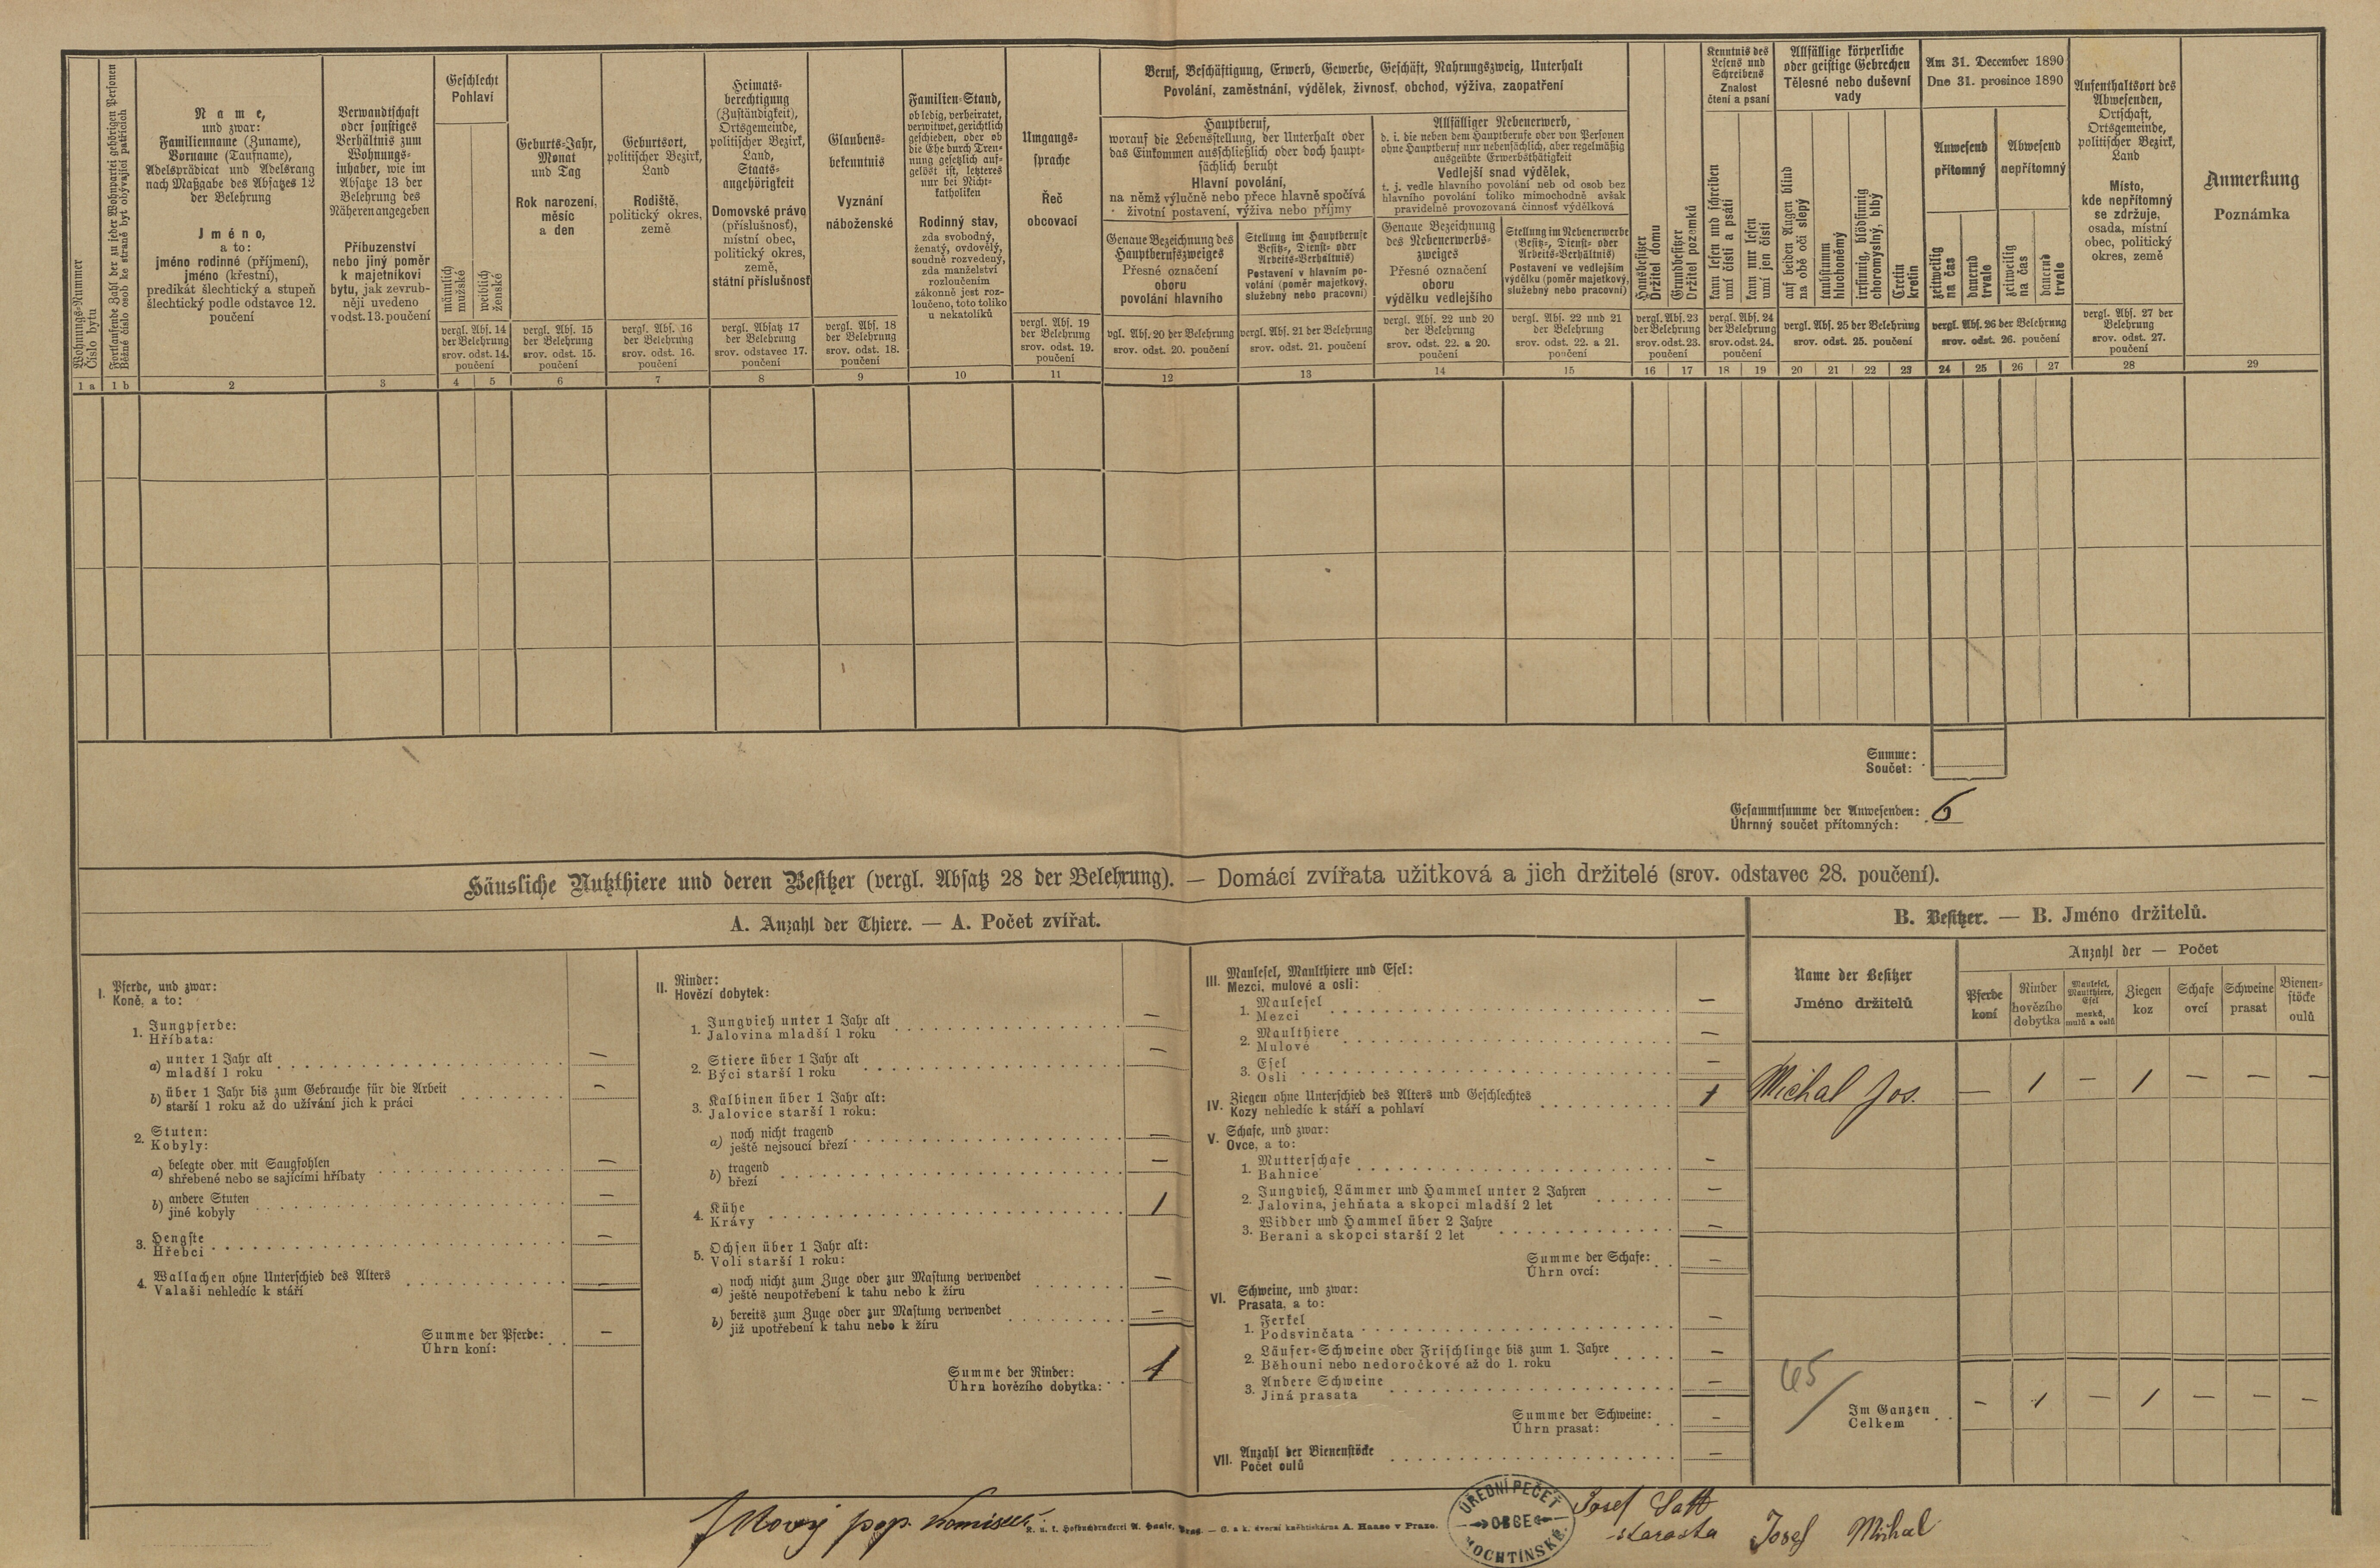 Wohnungs-Nummer
Číslo bytu
Fortlaufende Zahl der zu jeder Wohnpartei gehörigen Personen
Běžné číslo osob ke straně byt obývající patřících
Name,
und zwar:
Familienname (Zuname),
Vorname (Taufname),
Adelsprädicat und Adelsrang
nach Maßgabe des Absatzes 12
der Belehrung
Jméno,
a to:
jméno rodinné (příjmení),
jméno (křestní),
predikát šlechtický a stupeň
šlechtický podle odstavce 12.
poučení
Verwandtschaft
oder sonstiges
Verhältnis zum
Wohnungs-
inhaber, wie im
Absatze 13 der
Belehrung des
Näheren angegeben
Příbuzenství
nebo jiný poměr
k majetníkovi
bytu, jak zevrub-
něji uvedeno
v odst. 13. poučení
Geschlecht
Pohlaví
männlich
mužské
weiblich
ženské
vergl. Abs. 14
der Belehrung
srov. odst. 14.
poučení
Geburts-Jahr,
Monat
und Tag
Rok narození,
měsíc
a den
vergl. Abs. 15
der Belehrung
srov. odst. 15.
poučení
Geburtsort,
politischer Bezirk,
Land
Rodiště,
politický okres,
země
vergl. Abs. 16
der Belehrung
srov. odst. 16.
poučení
Heimats-
berechtigung
(Zuständigkeit),
Ortsgemeinde,
politischer Bezirk,
Land,
Staats-
angehörigkeit
Domovské právo
(příslušnost),
místní obec,
politický okres,
země,
státní příslušnost
vergl. Absatz 17
der Belehrung
srov. odstavec 17.
poučení
Glaubens-
bekenntnis
Vyznání
náboženské
vergl. Abs. 18
der Belehrung
srov. odst. 18.
poučení
Familien-Stand,
ob ledig, verheiratet,
verwitwet, gerichtlich
geschieden, oder ob
die Ehe durch Tren-
nung gesetzlich auf-
gelöst ist, letzteres
nur bei Nicht-
katholiken
Rodinný stav,
zda svobodný,
ženatý, ovdovělý,
soudně rozvedený,
zda manželství
rozloučením
zákonně jest roz-
loučeno, toto toliko
u nekatolíků
Umgangs-
sprache
Řeč
obcovací
vergl. Abs. 19
der Belehrung
srov. odst. 19.
poučení
Beruf, Beschäftigung, Erwerb, Gewerbe, Geschäft, Nahrungszweig, Unterhalt
Povolání, zaměstnání, výdělek, živnosť, obchod, výživa, zaopatření
Hauptberuf,
worauf die Lebensstellung, der Unterhalt oder
das Einkommen ausschließlich oder doch haupt-
sächlich beruht
Hlavní povolání,
na němž výlučně nebo přece hlavně spočívá
životní postavení, výživa nebo příjmy
Genaue Bezeichnung des
Hauptberufszweiges
Přesné označení
oboru
povolání hlavního
vgl. Abs. 20 der Belehrung
srov. odst. 20. poučení
Stellung im Hauptberufe
(Besitz-, Dienst- oder
Arbeits-Verhältnis)
Postavení v hlavním po-
volání (poměr majetkový,
služebný nebo pracovní)
vergl. Abs. 21 der Belehrung
srov. odst. 21. poučení
Allfälliger Nebenerwerb,
d. i. die neben dem Hauptberufe oder von Personen
ohne Hauptberuf nur nebensächlich, aber regelmäßig
ausgeübte Erwerbsthätigkeit
Vedlejší snad výdělek,
t. j. vedle hlavního povolání neb od osob bez
hlavního povolání toliko mimochodně avšak
pravidelně provozovaná činnosť výdělková
Genaue Bezeichnung
des Nebenerwerbs-
zweiges
Přesné označení
oboru
výdělku vedlejšího
vergl. Abs. 22 und 20
der Belehrung
srov. odst. 22. a 20.
poučení
Stellung im Nebenerwerbe
(Besitz-, Dienst- oder
Arbeits-Verhältnis)
Postavení ve vedlejším
výdělku (poměr majetkový,
služebný nebo pracovní)
vergl. Abs. 22 und 21
der Belehrung
srov. odst. 22. a 21.
poučení
Hausbesitzer
Držitel domu
Grundbesitzer
Držitel pozemků
vergl. Abs. 23
der Belehrung
srov. odst. 23.
poučení
Kenntnis des
Lesens und
Schreibens
Znalost
čtení a psaní
kann lesen und schreiben
umí čísti a psáti
kann nur lesen
umí jen čísti
vergl. Abs. 24
der Belehrung
srov. odst. 24.
poučení
Allfällige körperliche
oder geistige Gebrechen
Tělesné nebo duševní
vady
auf beiden Augen blind
na obě oči slepý
taubstumm
hluchoněmý
irrsinnig, blödsinnig
choromyslný, blbý
Cretin
kretin
vergl. Abs. 25 der Belehrung
srov. odst. 25. poučení
Am 31. December 1890
Dne 31. prosince 1890
Anwesend
přítomný
Abwesend
nepřítomný
zeitweilig
na čas
dauernd
trvale
zeitweilig
na čas
dauernd
trvale
vergl. Abs. 26 der Belehrung
srov. odst. 26. poučení
Aufenthaltsort des
Abwesenden,
Ortschaft,
Ortsgemeinde,
politischer Bezirk,
Land
Místo,
kde nepřítomný
se zdržuje,
osada, místní
obec, politický
okres, země
vergl. Abs. 27 der
Belehrung
srov. odst. 27.
poučení
Anmerkung
Poznámka
1 a 1 b 2 3 4 5 6 7 8 9 10 11 12 13 14 15 16 17 18 19 20 21 22 23 24 25 26 27 28 29
Summe:
Součet:
Gesammtsumme der Anwesenden: 6
Úhrnný součet přítomných:
Häusliche Nutzthiere und deren Besitzer (vergl. Absatz 28 der Belehrung). — Domácí zvířata užitková a jich držitelé (srov. odstavec 28. poučení).
A. Anzahl der Thiere. — A. Počet zvířat.
I. Pferde, und zwar:
Koně, a to:
1. Jungpferde:
Hříbata:
a) unter 1 Jahr alt —
mladší 1 roku
b) über 1 Jahr bis zum Gebrauche für die Arbeit —
starší 1 roku až do užívání jich k práci
2. Stuten:
Kobyly:
a) belegte oder mit Saugfohlen —
shřebené nebo se sajícími hříbaty
b) andere Stuten —
jiné kobyly
3. Hengste —
Hřebci
4. Wallachen ohne Unterschied des Alters —
Valaši nehledíc k stáří
Summe der Pferde: —
Úhrn koní:
II. Rinder:
Hovězí dobytek:
1. Jungvieh unter 1 Jahr alt —
Jalovina mladší 1 roku
2. Stiere über 1 Jahr alt —
Býci starší 1 roku
3. Kalbinen über 1 Jahr alt:
Jalovice starší 1 roku:
a) noch nicht tragend —
ještě nejsoucí březí
b) tragend —
březí
4. Kühe 1
Krávy
5. Ochsen über 1 Jahr alt:
Voli starší 1 roku:
a) noch nicht zum Zuge oder zur Mastung verwendet —
ještě neupotřebení k tahu nebo k žíru
b) bereits zum Zuge oder zur Mastung verwendet —
již upotřebení k tahu nebo k žíru
Summe der Rinder: 1
Úhrn hovězího dobytka:
III. Maulesel, Maulthiere und Esel:
Mezci, mulové a osli:
1. Maulesel —
Mezci
2. Maulthiere —
Mulové
3. Esel —
Osli
IV. Ziegen ohne Unterschied des Alters und Geschlechtes 1
Kozy nehledíc k stáří a pohlaví
V. Schafe, und zwar:
Ovce, a to:
1. Mutterschafe —
Bahnice
2. Jungvieh, Lämmer und Hammel unter 2 Jahren —
Jalovina, jehňata a skopci mladší 2 let
3. Widder und Hammel über 2 Jahre —
Berani a skopci starší 2 let
Summe der Schafe: —
Úhrn ovcí:
VI. Schweine, und zwar:
Prasata, a to:
1. Ferkel —
Podsvinčata
2. Läufer-Schweine oder Frischlinge bis zum 1. Jahre —
Běhouni nebo nedoročkové až do 1. roku
3. Andere Schweine —
Jiná prasata
Summe der Schweine: —
Úhrn prasat:
VII. Anzahl der Bienenstöcke —
Počet oulů
B. Besitzer. — B. Jméno držitelů.
Name der Besitzer
Jméno držitelů
Anzahl der — Počet
Pferde
koní
Rinder
hovězího
dobytka
Maulesel,
Maulthiere,
Esel
mezků,
mulů a oslů
Ziegen
koz
Schafe
ovcí
Schweine
prasat
Bienen-
stöcke
oulů
Michal Jos. — 1 — 1 — — —
45
Im Ganzen - 1 — 1 — — —
Celkem
Nový pop. komisař
K. u. k. Hofbuchdruckerei A. Haase, Prag. — C. a k. dvorní knihtiskárna A. Haase v Praze.
ÚŘEDNÍ PEČEŤ
OBCE
MOCHTÍNSKÉ
Josef
starosta
Josef Michal